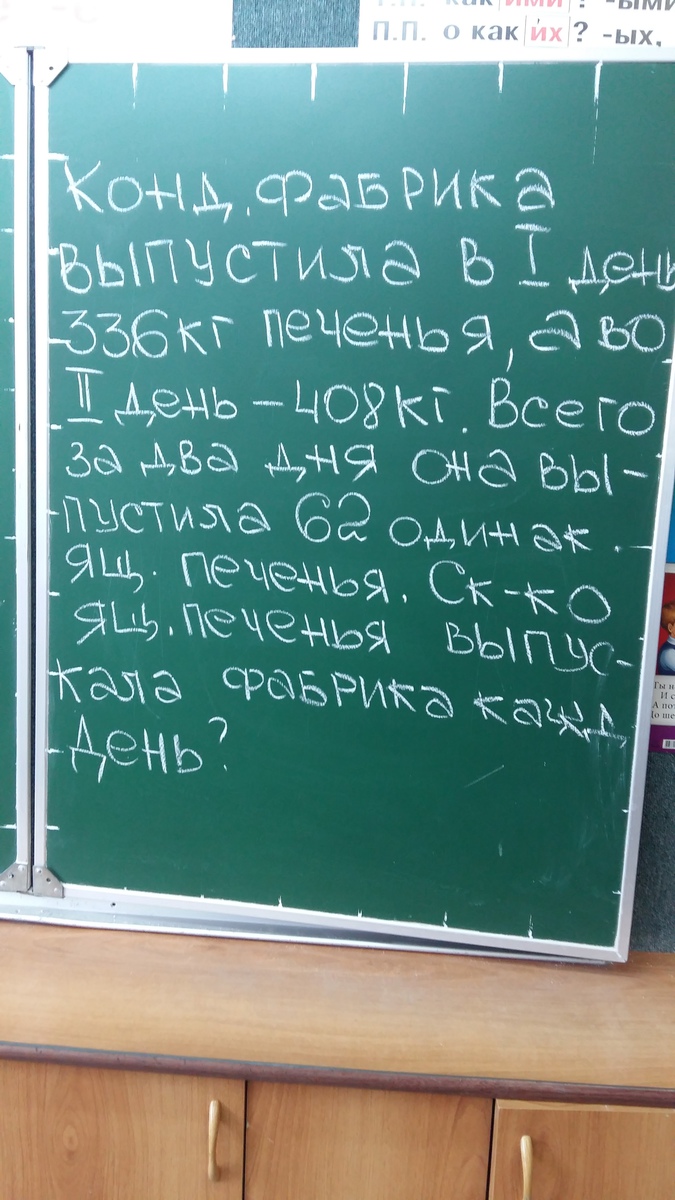 Т.П. как ими? -ыми
П.П. о как их? -ых,
Конд. фабрика
выпустила в I день
336кг печенья, а во
II день – 408кг. Всего
за два дня она вы-
пустила 62 одинак.
ящ. печенья. Ск-ко
ящ. печенья выпус-
кала фабрика кажд
день?